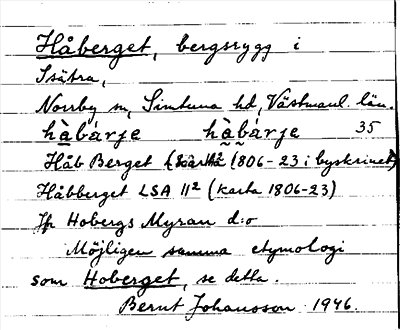 Håberget, bergsrygg i
Isätra,
Norrby sn, Simtuna hd, Västmanl. län.
hàbárje hàbárje 35
Håb Berget (karta 1806-23 i byskrinet)
Håbberget LSA 11² (karta 1806-23)
Jfr Hobergs Myran d:o
Möjligen samma etymologi
som Hoberget, se detta.
Bernt Johansson 1946.